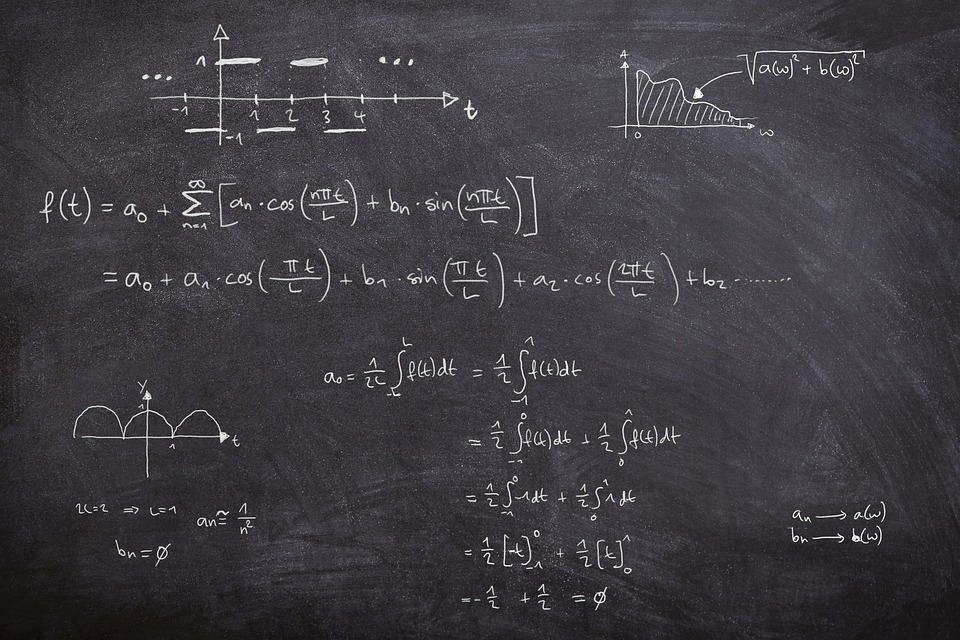 1
... ...
-1 1 2 3 4 t
-1
A
√(a(ω)² + b(ω)²)
0 ω
f(t) = a₀ + ∑ₙ₌₁^∞ [aₙ·cos(nπt/L) + bₙ·sin(nπt/L)]
= a₀ + a₁·cos(πt/L) + b₁·sin(πt/L) + a₂·cos(2πt/L) + b₂ ........
a₀ = 1/2L ∫₋L^L f(t)dt = 1/2 ∫₋₁^1 f(t)dt
= 1/2 ∫₋₁^0 f(t)dt + 1/2 ∫₀^1 f(t)dt
= 1/2 ∫₋₁^0 -1dt + 1/2 ∫₀^1 1dt
= 1/2 [-t]₋₁^0 + 1/2 [t]₀^1
= -1/2 + 1/2 = ∅
y
1
t
1
2L=2 ⇒ L=1
aₙ ≅ 1/n²
bₙ = ∅
aₙ → a(ω)
bₙ → b(ω)